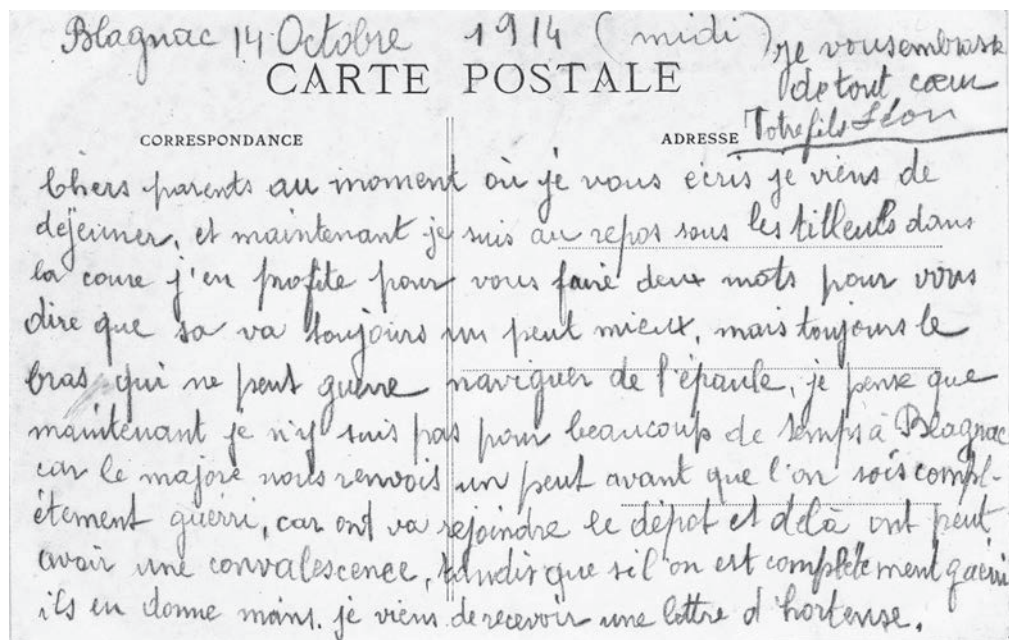 Blagnac 14 Octobre 1914 (midi)
CARTE POSTALE
CORRESPONDANCE
ADRESSE
Chers parents au moment où je vous ecris je viens de
déjeuner, et maintenant je suis au repos sous les tilleuls dans
la coure j'en profite pour vous faire deux mots pour vous
dire que sa va toujours un peut mieux, mais toujours le
bras qui ne peut guerre naviguer de l'épaule, je pense que
maintenant je n'y suis pas pour beaucoup de temps à Blagnac
car le majore nous renvois un peut avant que l'on sois compl-
étement guerri, car ont va rejoindre le dépot et delà ont peut
avoir une convalescence, tandis que si l'on est complétement guerri
ils en donne moins. je viens de recevoir une lettre d'hortense.
je vous embrasse
de tout cœur
Votre fils Léon